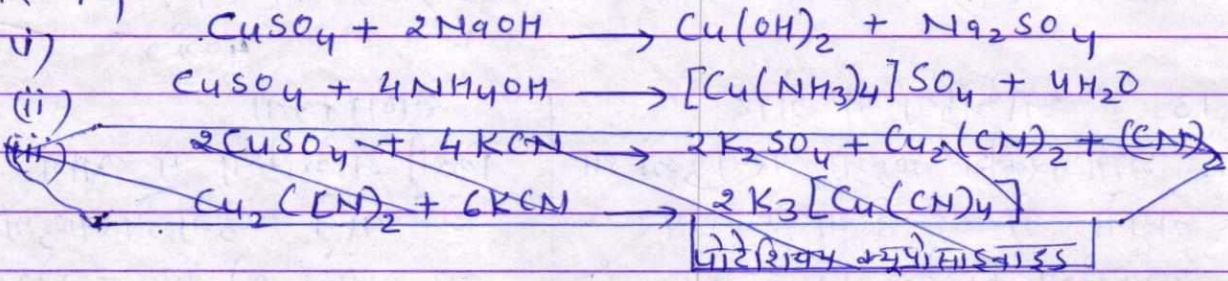 i) CuSO4 + 2NaOH → Cu(OH)2 + Na2SO4
(ii) CuSO4 + 4NH4OH → [Cu(NH3)4]SO4 + 4H2O
(iii) 2CuSO4 + 4KCN → 2K2SO4 + Cu2(CN)2 + (CN)2
Cu2(CN)2 + 6KCN → 2K3[Cu(CN)4]
पोटेशियम क्यूप्रोसाइनाइड